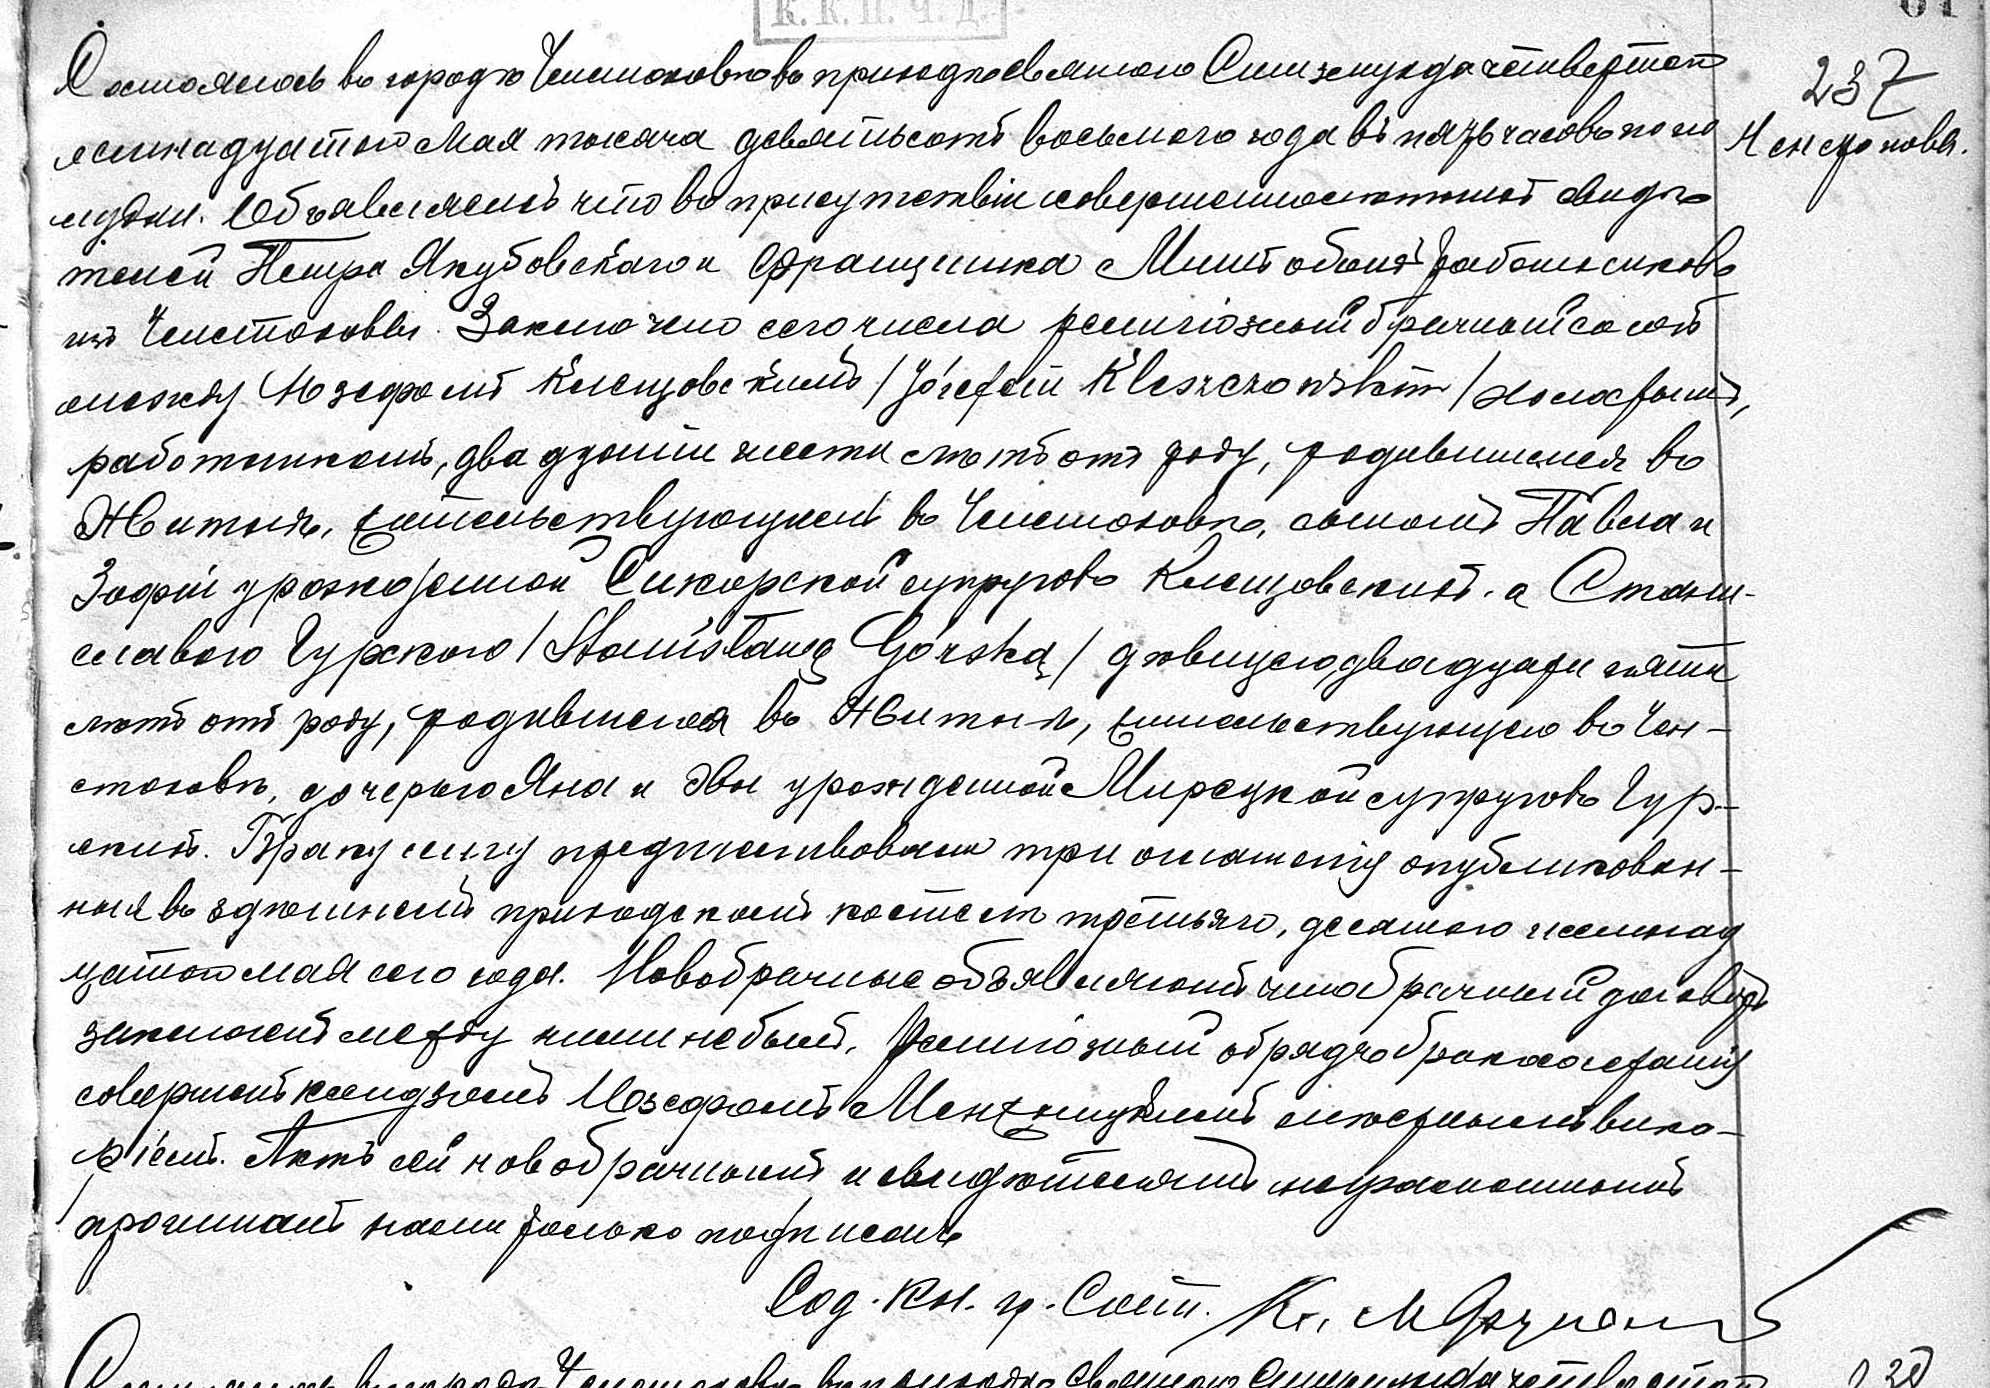 К. К. П. Ч. Д.
61
237
Ченстоховъ.
Состоялось въ городѣ Ченстоховѣ въ приходѣ Святого Сигизмунда четвертаго
семнадцатого Мая тысяча девятьсотъ восьмого года въ пять часовъ попо
лудни. Объявляемъ что въ присутствіи совершеннолѣтнихъ свидѣ
телей Петра Якубовскаго и Францишка Мишъ обоихъ работниковъ
изъ Ченстоховы. Заключено сего числа религіозный брачный союзъ
между Юзефомъ Клещовскимъ /Józefem Kleszczowskim/ холостымъ,
работникомъ, двадцати шести лѣтъ отъ роду, родившимся въ
Житнѣ, жительствующимъ въ Ченстоховѣ, сыномъ Павла и
Зофіи урожденной Сикорской супруговъ Клещовскихъ. а Стани-
славою Гурскою /Stanisławą Górską/ дѣвицею, двадцати пяти
лѣтъ отъ роду, родившеюся въ Житнѣ, жительствующею въ Чен-
стоховѣ, дочерью Яна и Эвы урожденной Мирецкой супруговъ Гур-
скихъ. Браку сему предшествовали три оглашенія опубликован-
ныя въ здѣшнемъ приходскомъ костелѣ третьяго, десятого и семнад
цатого мая сего года. Новобрачные объявляютъ что брачный договоръ
заключенъ между ними не былъ. Религіозный обрядъ бракосочетанія
совершенъ ксендземъ Юзефомъ Менжницкимъ мѣстнымъ вика-
ріемъ. Актъ сей новобрачнымъ и свидѣтелямъ неграмотнымъ
прочитанъ нами только подписанъ
Сод. Кн. гр. Сост. Кс. М
Состоялось въ городѣ Ченстоховѣ въ приходѣ Святого Сигизмунда четвертаго